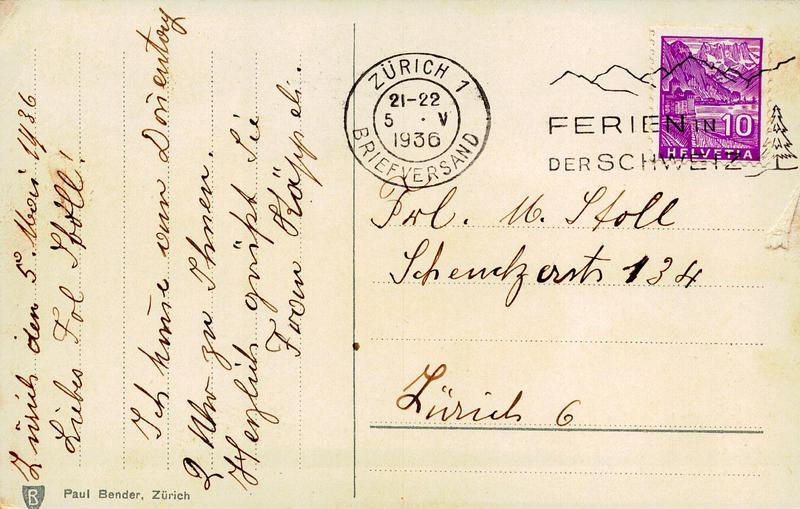 Zürich den 5. Mai 1936
Liebes Frl Stoll!
Ich kome am Donentag
2 Uhr zu Ihnen.
Herzlich grüst Sie
Frau Käppeli.
Paul Bender, Zürich
ZÜRICH 1
21-22
5 · V
1936
BRIEFVERSAND
FERIEN IN
DER SCHWEIZ
10
HELVETIA
Frl. M. Stoll
Scheuchzerstr 134
Zürich 6